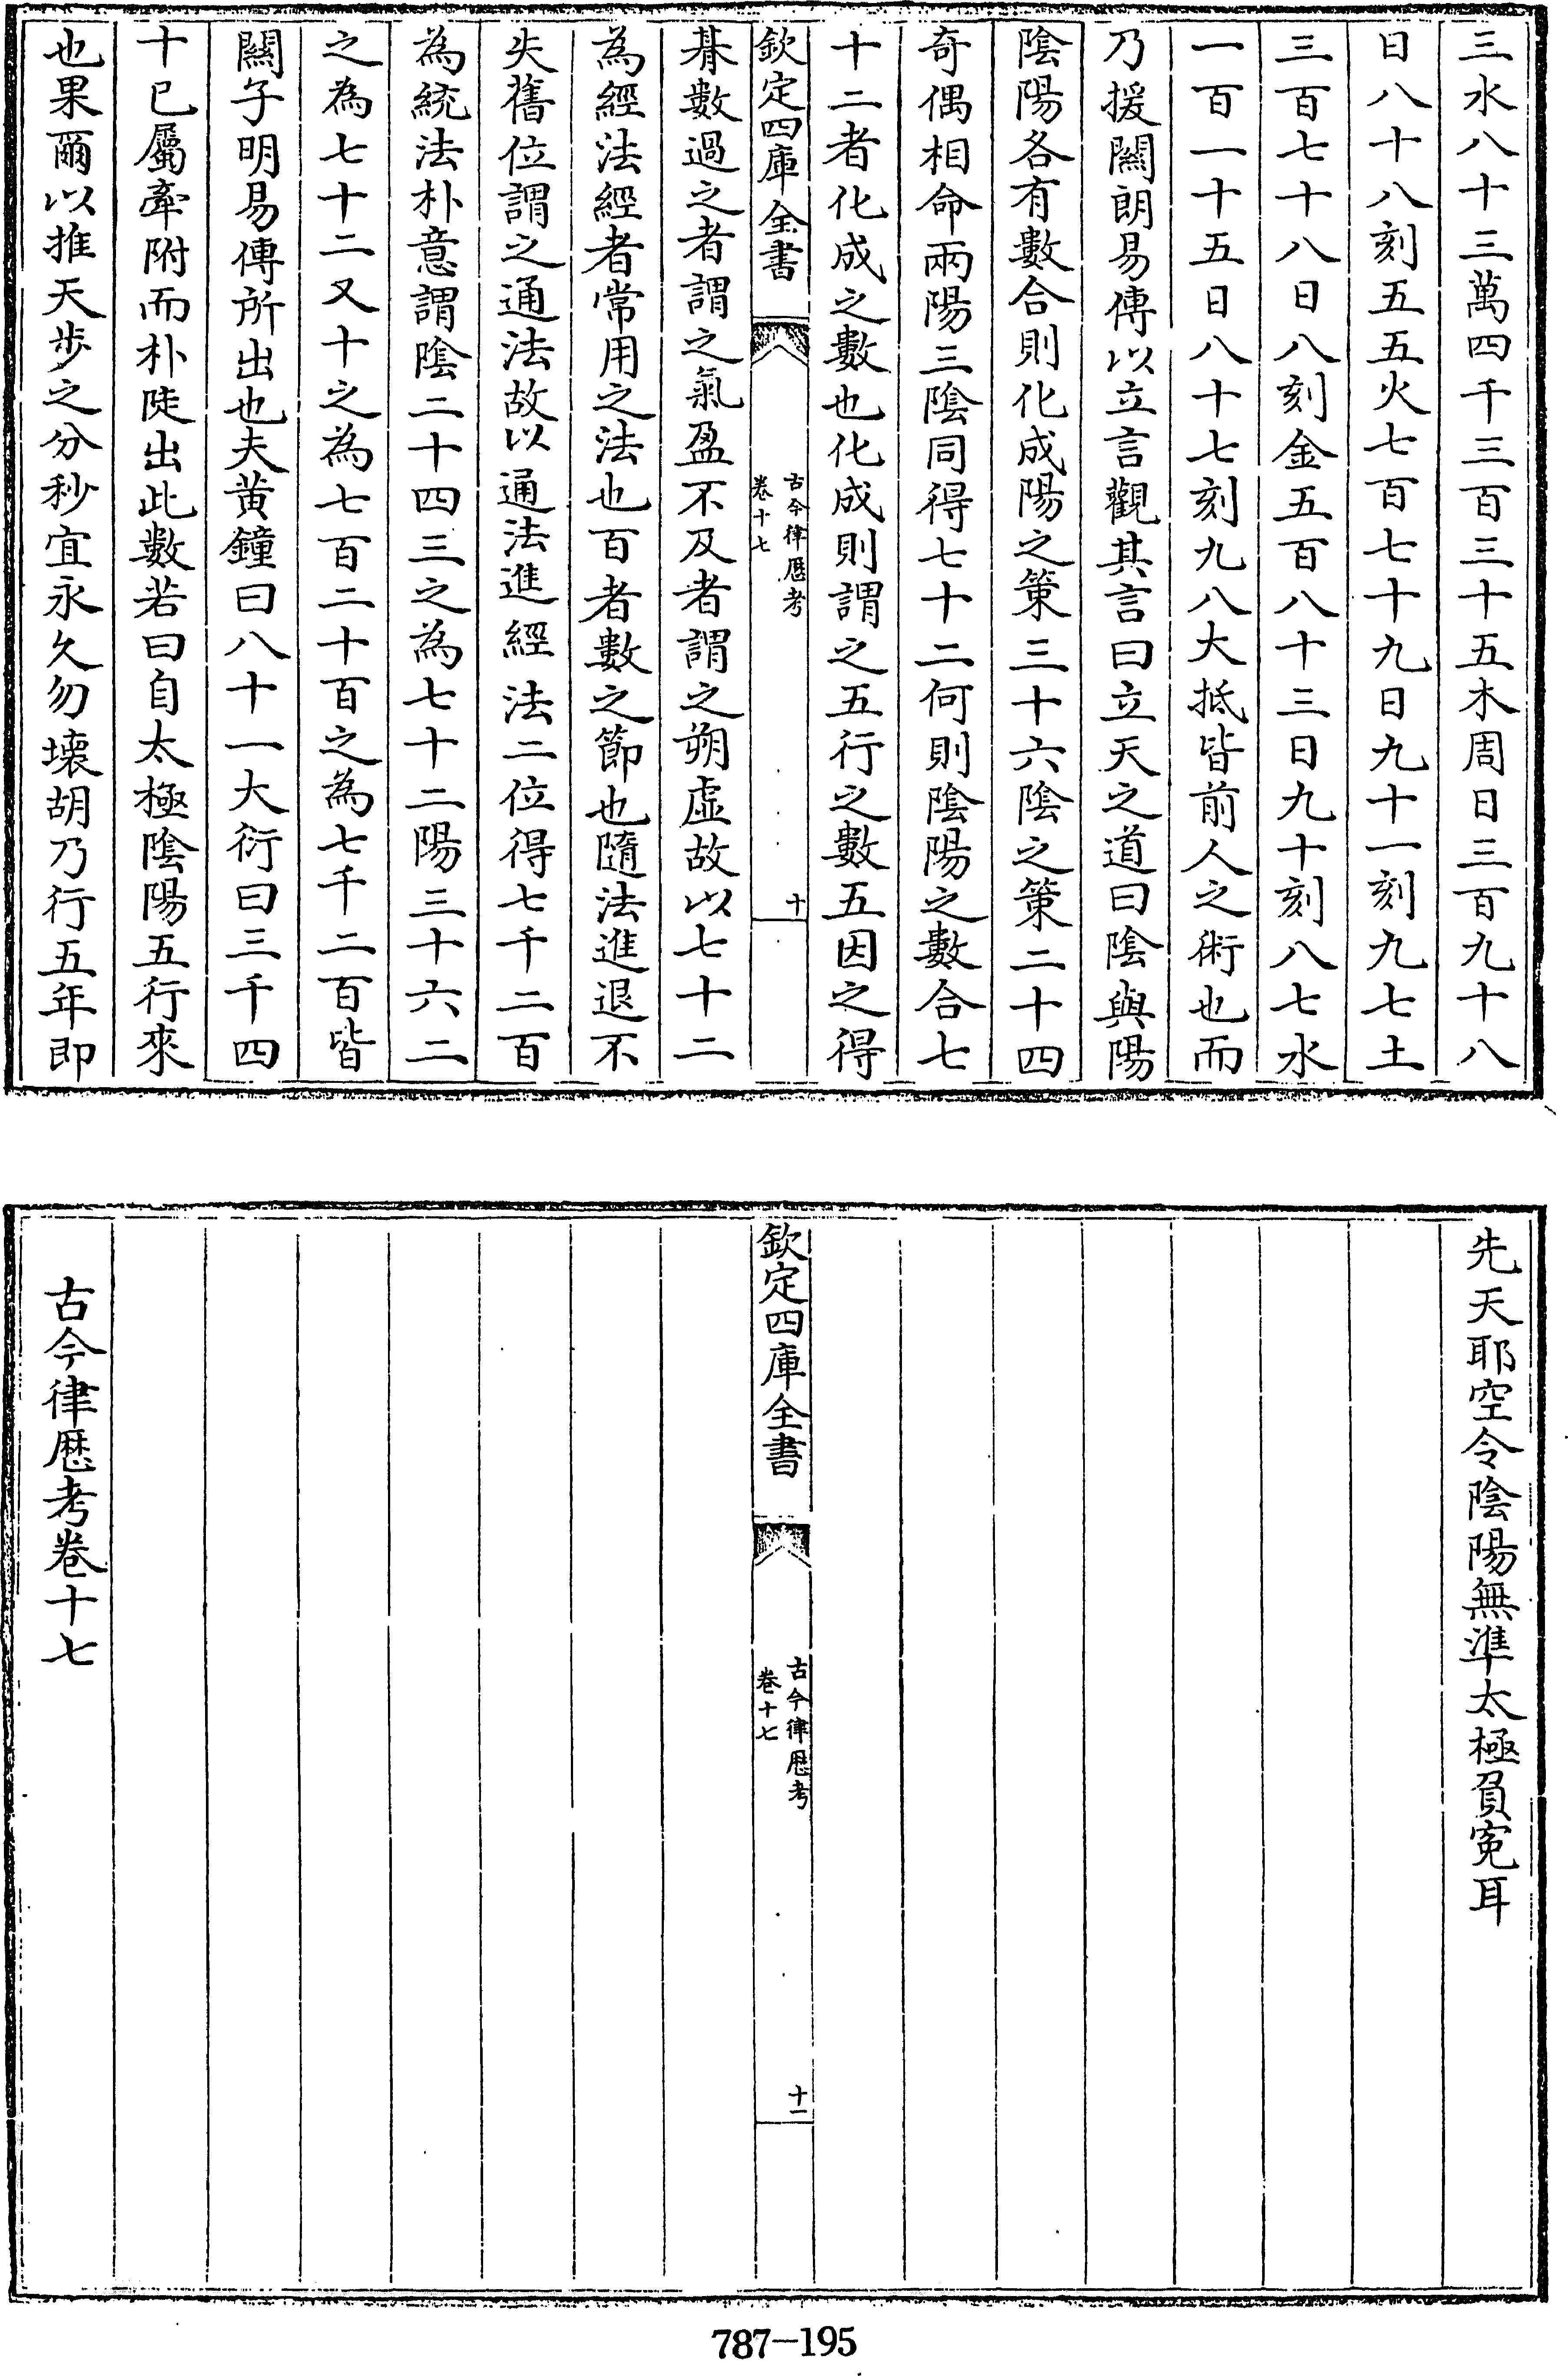 三水八十三萬四千三百三十五木周日三百九十八
日八十八刻五五火七百七十九日九十一刻九七土
三百七十八日八刻金五百八十三日九十刻八七水
一百一十五日八十七刻九八大抵皆前人之術也而
乃援關朗易傳以立言觀其言曰立天之道曰陰與陽
陰陽各有數合則化成陽之策三十六陰之策二十四
奇偶相命兩陽三陰同得七十二何則陰陽之數合七
十二者化成之數也化成則謂之五行之數五因之得
欽定四庫全書
古今律厯考
卷十七
十
朞數過之者謂之氣盈不及者謂之朔虛故以七十二
為經法經者常用之法也百者數之節也隨法進退不
失舊位謂之通法故以通法進經法二位得七千二百
為統法朴意謂陰二十四三之為七十二陽三十六二
之為七十二又十之為七百二十百之為七千二百皆
關子明易傳所出也夫黃鐘曰八十一大衍曰三千四
十已屬牽附而朴陡出此數若曰自太極陰陽五行來
也果爾以推天步之分秒宜永久勿壞胡乃行五年即
先天耶空令陰陽無準太極負寃耳
欽定四庫全書
古今律厯考
卷十七
十一
古今律厯考卷十七
787-195